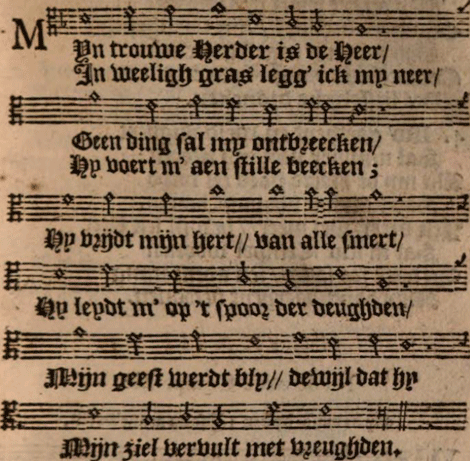 MYn trouwe Herder is de Heer/
In weeligh gras legg' ick my neer/
Geen ding sal my ontbreecken/
Hy voert m' aen stille beecken;
Hy vrijdt mijn hert// van alle smert/
Hy leydt m' op 't spoor der deughden/
Mijn geest werdt bly// dewijl dat hy
Mijn ziel vervult met vreughden.